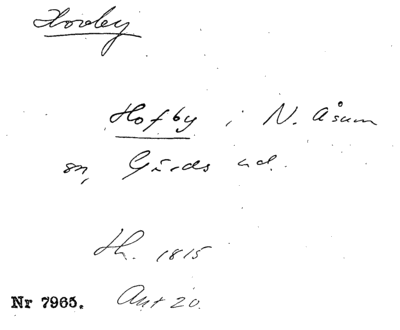 Hovby
Hofby i N. Åsum
sn, Gärds hd.
Th. 1815
Nr 7965. Ant 20.